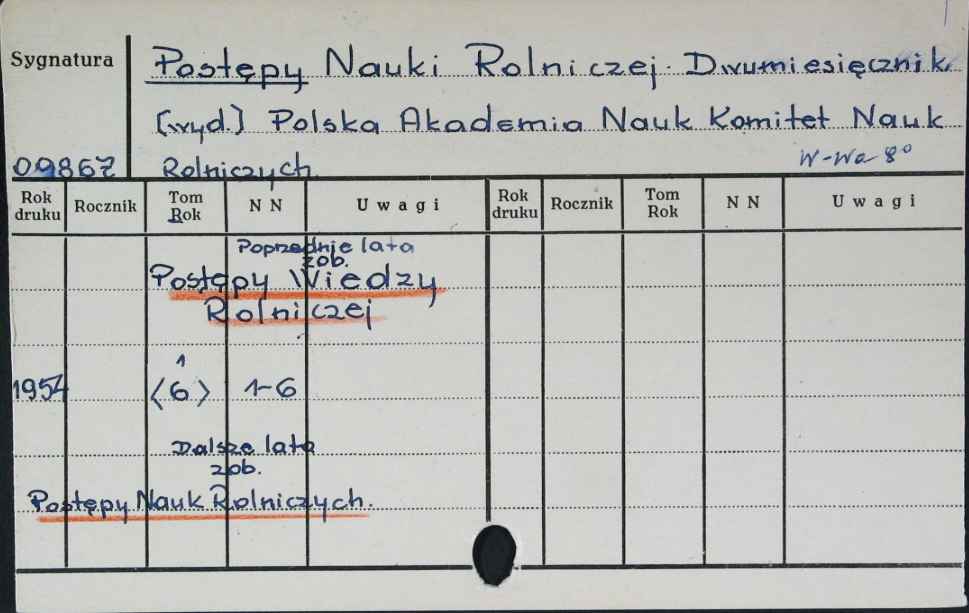 Sygnatura
Postępy Nauki Rolniczej. Dwumiesięcznik.
[wyd.] Polska Akademia Nauk Komitet Nauk
09867 Rolniczych W-wa 8°
Rok druku Rocznik Tom Rok N N Uwagi Rok druku Rocznik Tom Rok N N Uwagi
Poprzednie lata
zob.
Postępy Wiedzy
Rolniczej
1
1954 <6> 1-6
Dalsze lata
zob.
Postępy Nauk Rolniczych.